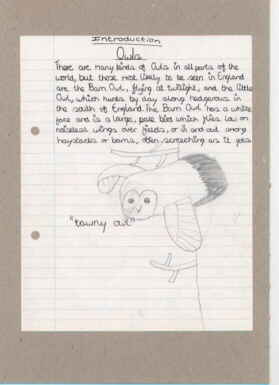 Introduction
Owls
There are many kinds of Owls in all parts of the
world, but those most likely to be seen in England
are the Barn Owl, flying at twilight, and the Little
Owl, which hunts by day along hedgerows in
the south of England. The Barn Owl has a white
face and is a large, pale bird which flies low on
noiseless wings over fields, or in and out among
haystacks or barns, often screeching as it goes.
"tawny owl"